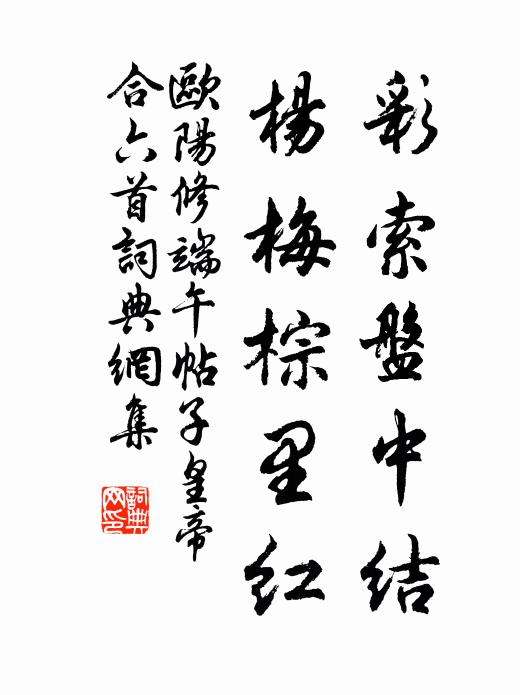 彩索盤中結
楊梅棕里紅
歐陽修端午帖子皇帝
合六首詞典網集
詞典网印